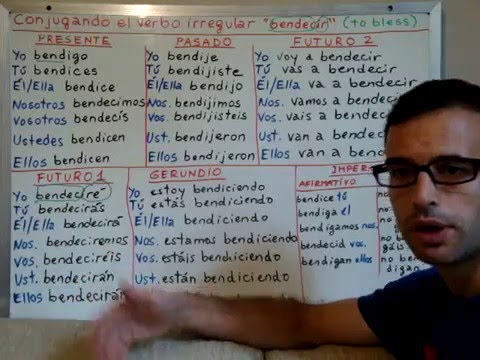 Conjugando el verbo irregular "bendecir" (to bless)
PRESENTE
Yo bendigo
Tú bendices
Él/Ella bendice
Nosotros bendecimos
Vosotros bendecís
Ustedes bendicen
Ellos bendicen
PASADO
Yo bendije
Tú bendijiste
Él/Ella bendijo
Nos. bendijimos
Vos. bendijisteis
Ust. bendijeron
Ellos bendijeron
FUTURO 2
Yo voy a bendecir
Tú vas a bendecir
Él/Ella va a bendecir
Nos. vamos a bendecir
Vos. vais a bendecir
Ust. van a bendecir
Ellos van a ben
FUTURO 1
Yo bendeciré
Tú bendecirás
Él/Ella bendecirá
Nos. bendeciremos
Vos. bendeciréis
Ust. bendecirán
Ellos bendecirán
GERUNDIO
Yo estoy bendiciendo
Tú estás bendiciendo
Él/Ella bendiciendo
Nos. estamos bendiciendo
Vos. estáis bendiciendo
Ust. están bendiciendo
IMPER
AFIRMATIVO
bendice tú
bendiga el
bendigamos nos.
bendecid vos.
bendigan ellos
no
no
no ben
gáis
no ben
digan